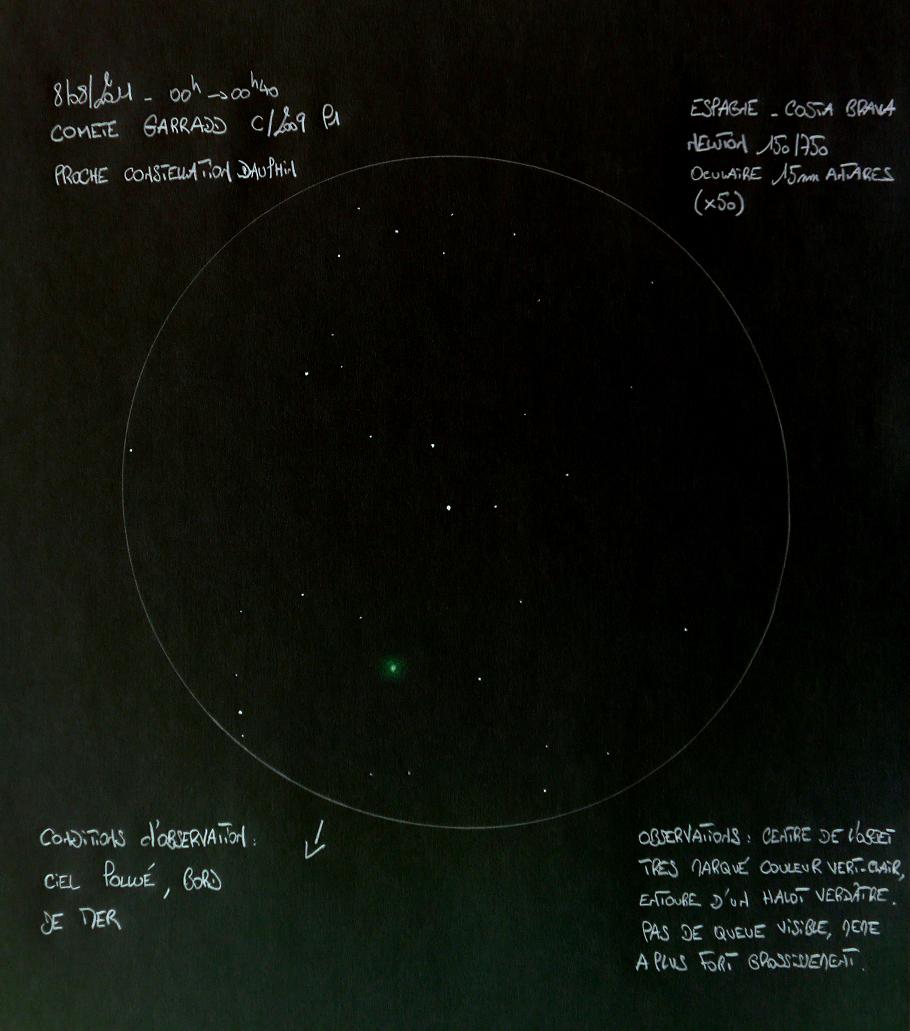 8/08/2011 - 00h → 00h40
COMETE GARRADD C/2009 P1
PROCHE CONSTELLATION DAUPHIN
ESPAGNE - COSTA BRAVA
NEWTON 150/750
OCULAIRE 15mm ANTARES
(x50)
CONDITIONS d'OBSERVATION :
CIEL POLLUÉ, BORD
DE MER
OBSERVATIONS : CENTRE DE L'OBJET
TRES MARQUÉ COULEUR VERT-CLAIR,
ENTOURE D'UN HALOT VERDÂTRE.
PAS DE QUEUE VISIBLE, MEME
A PLUS FORT GROSSISSEMENT.